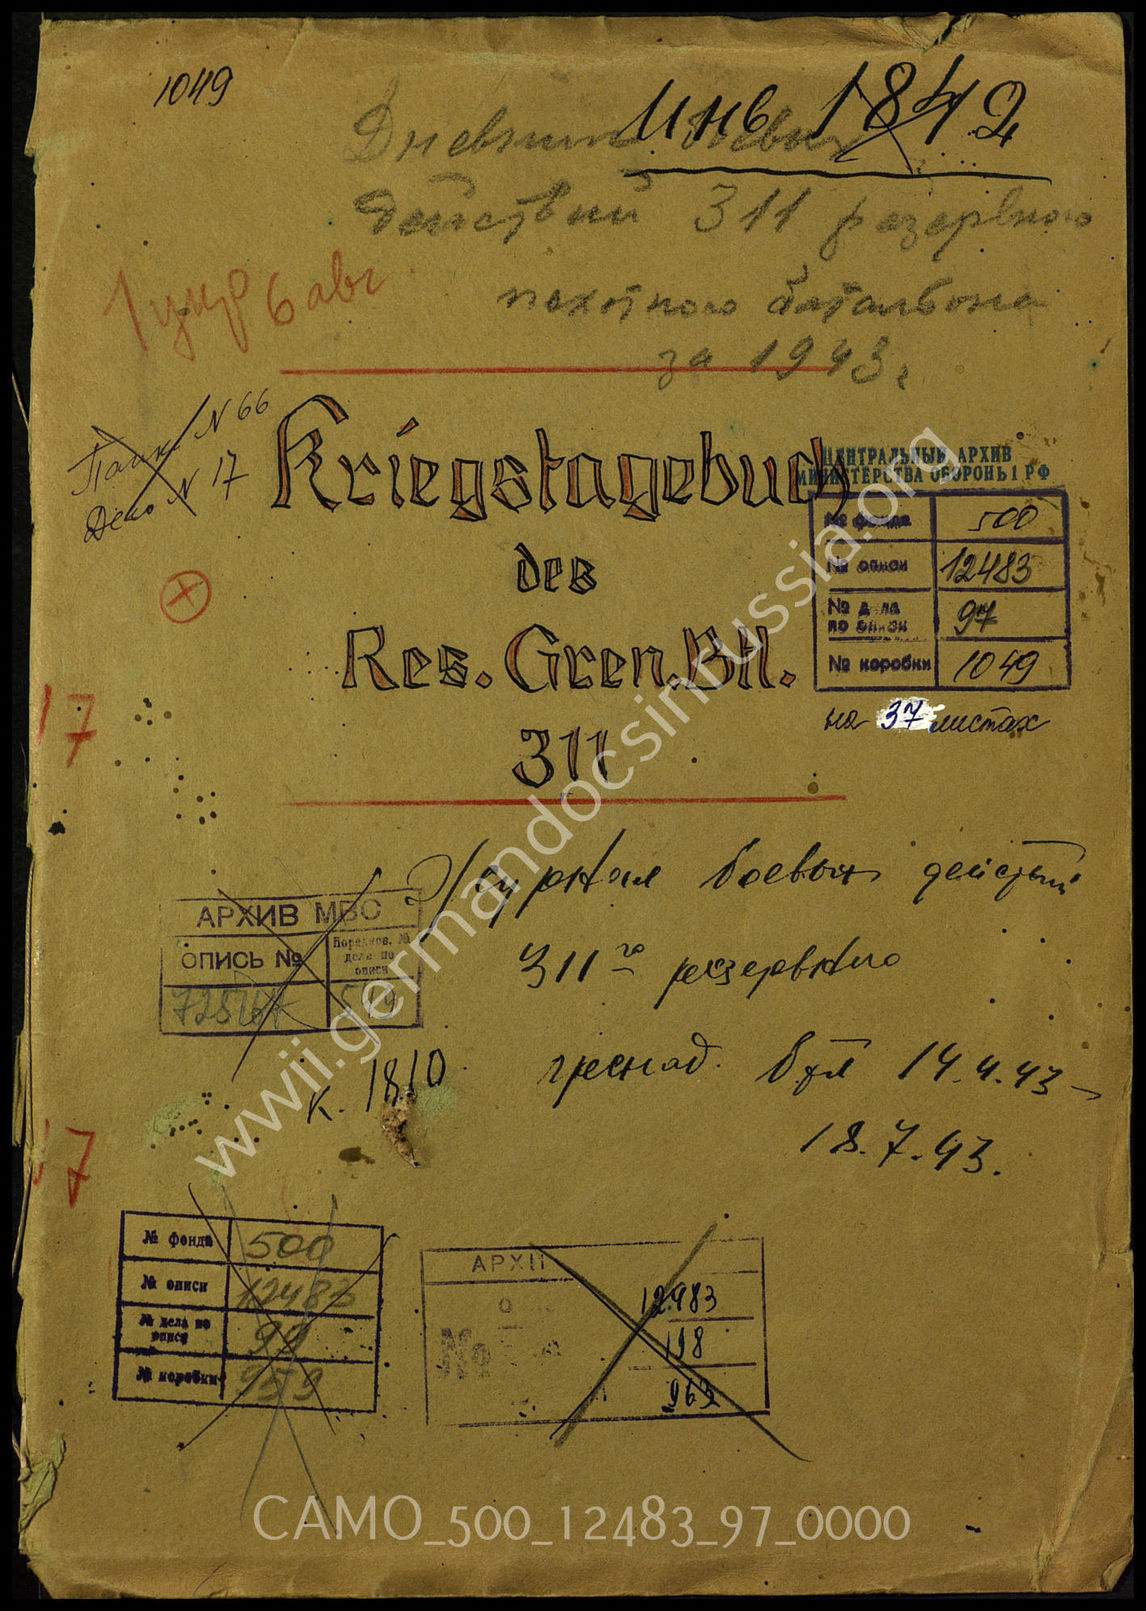 1049
Инв 1842
Дневник боевых
действий 311 резервного
пехотного батальона
за 1943 г.
6 авг.
Папка N 66
Дело N 17
Kriegstagebuch
des
Res. Gren. Btl.
311
ЦЕНТРАЛЬНЫЙ АРХИВ
МИНИСТЕРСТВА ОБОРОНЫ РФ
№ фонда 500
№ описи 12483
№ дела по описи 97
№ коробки 1049
на 37 листах
17
Журнал боевых действий
311го резервного
гренад. бтл 14.4.43 –
18.7.43.
АРХИВ МВС
ОПИСЬ №
Порядков. № дела по описи
к. 1810
17
№ фонда 500
№ описи 12483
№ дела по описи 99
№ коробки 959
АРХИ
12483
№ 198
963
www.germandocsinrussia.org
CAMO_500_12483_97_0000